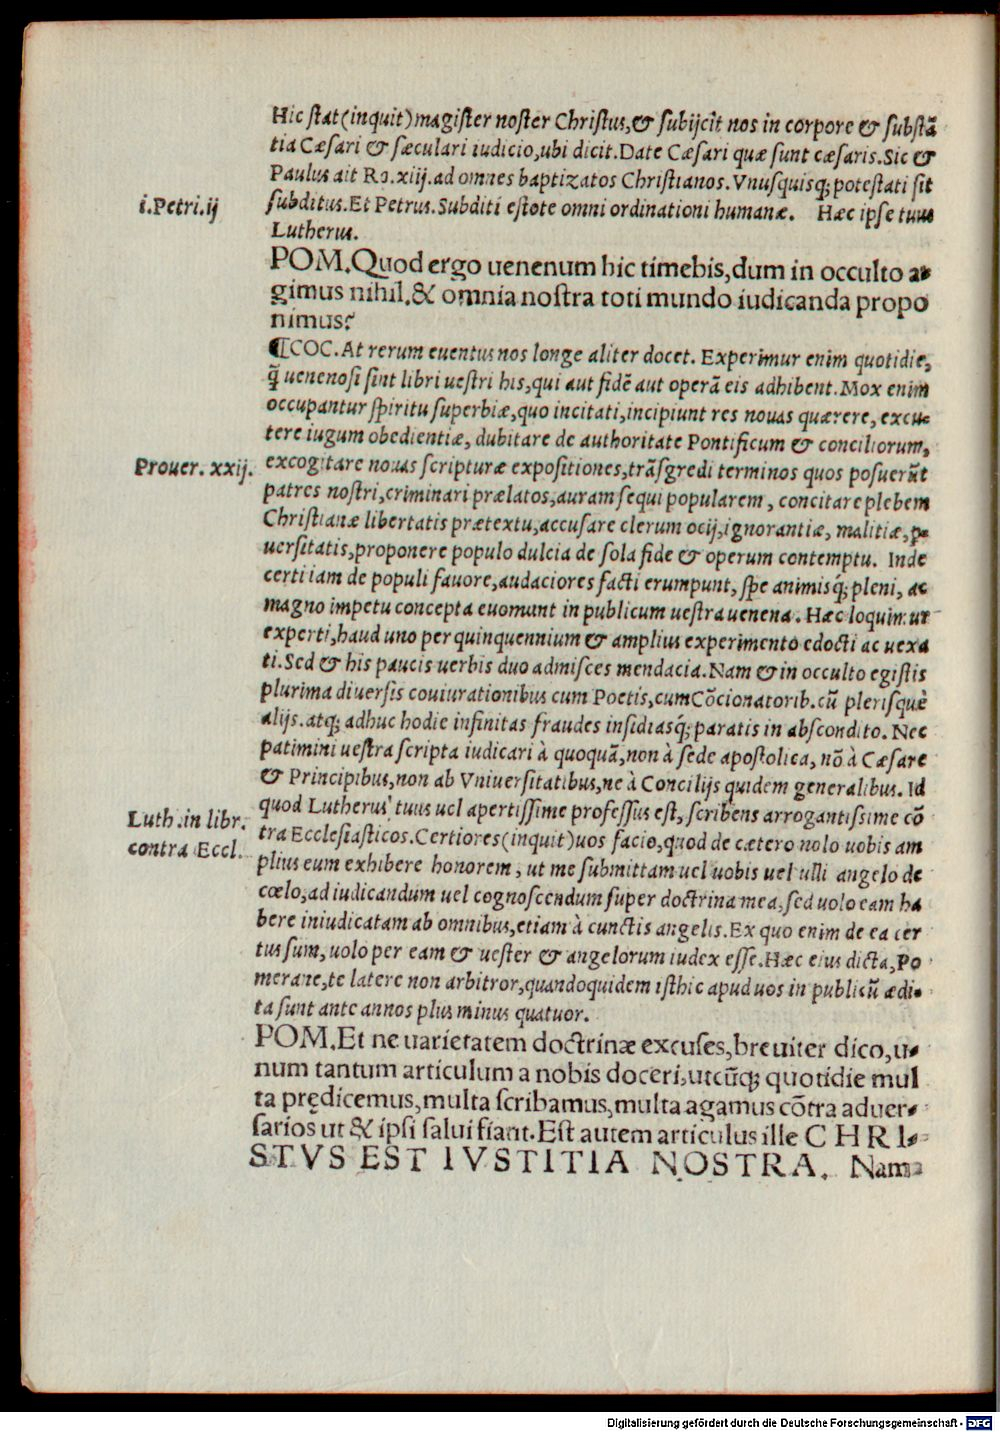 Hic ſtat (inquit) magiſter noſter Chriſtus, & ſubijcit nos in corpore & ſubſtā
tia Cæſari & ſæculari iudicio, ubi dicit. Date Cæſari quæ ſunt cæſaris. Sic &
Paulus ait Ro. xiij. ad omnes baptizatos Chriſtianos. Vnuſquisq; poteſtati ſit
i. Petri. ij
ſubditus. Et Petrus. Subditi eſtote omni ordinationi humanæ. Hæc ipſe tuus
Lutherus.
POM. Quod ergo uenenum hic timebis, dum in occulto a-
gimus nihil, & omnia noſtra toti mundo iudicanda propo
nimus?
¶COC. At rerum euentus nos longe aliter docet. Experimur enim quotidie,
q̄ uenenoſi ſint libri ueſtri his, qui aut fidē aut operā eis adhibent. Mox enim
occupantur ſpiritu ſuperbiæ, quo incitati, incipiunt res nouas quærere, excu-
tere iugum obedientiæ, dubitare de authoritate Pontificum & conciliorum,
Prouer. xxij.
excogitare nouas ſcripturæ expoſitiones, trāſgredi terminos quos poſuerūt
patres noſtri, criminari prælatos, auram ſequi popularem, concitare plebem
Chriſtianæ libertatis prætextu, accuſare clerum ocij, ignorantiæ, malitiæ, ꝑ-
uerſitatis, proponere populo dulcia de ſola fide & operum contemptu. Inde
certi iam de populi fauore, audaciores facti erumpunt, ſpe animisq́; pleni, ac
magno impetu concepta euomunt in publicum ueſtra uenena. Hæc loquimur
experti, haud uno per quinquennium & amplius experimento edocti ac uexa
ti. Sed & his paucis uerbis duo admiſces mendacia. Nam & in occulto egiſtis
plurima diuerſis coniurationibus cum Poetis, cum Cōcionatorib. cū pleriſquè
alijs. atq; adhuc hodie infinitas fraudes inſidiasq́; paratis in abſcondito. Nec
patimini ueſtra ſcripta iudicari à quoquā, non à ſede apoſtolica, nō à Cæſare
& Principibus, non ab Vniuerſitatibus, ne à Concilijs quidem generalibus. Id
Luth. in libr.
quod Lutherus tuus uel apertiſſime profeſſus eſt, ſcribens arrogantiſſime cō
contra Eccl.
tra Eccleſiaſticos. Certiores (inquit) uos facio, quod de cætero nolo uobis am
plius eum exhibere honorem, ut me ſubmittam uel uobis uel ulli angelo de
cœlo, ad iudicandum uel cognoſcendum ſuper doctrina mea, ſed uolo eam ha
bere iniudicatam ab omnibus, etiam à cunctis angelis. Ex quo enim de ea cer
tus ſum, uolo per eam & ueſter & angelorum iudex eſſe. Hæc eius dicta, Po
merane, te latere non arbitror, quandoquidem iſthic apud uos in publicū ædi-
ta ſunt ante annos plus minus quatuor.
POM. Et ne uarietatem doctrinæ excuſes, breuiter dico, u-
num tantum articulum a nobis doceri, utcūq; quotidie mul
ta prędicemus, multa ſcribamus, multa agamus cōtra aduer-
ſarios ut & ipſi ſalui fiant. Eſt autem articulus ille CHRI-
STVS EST IVSTITIA NOSTRA. Nam
Digitalisierung gefördert durch die Deutsche Forschungsgemeinschaft - DFG